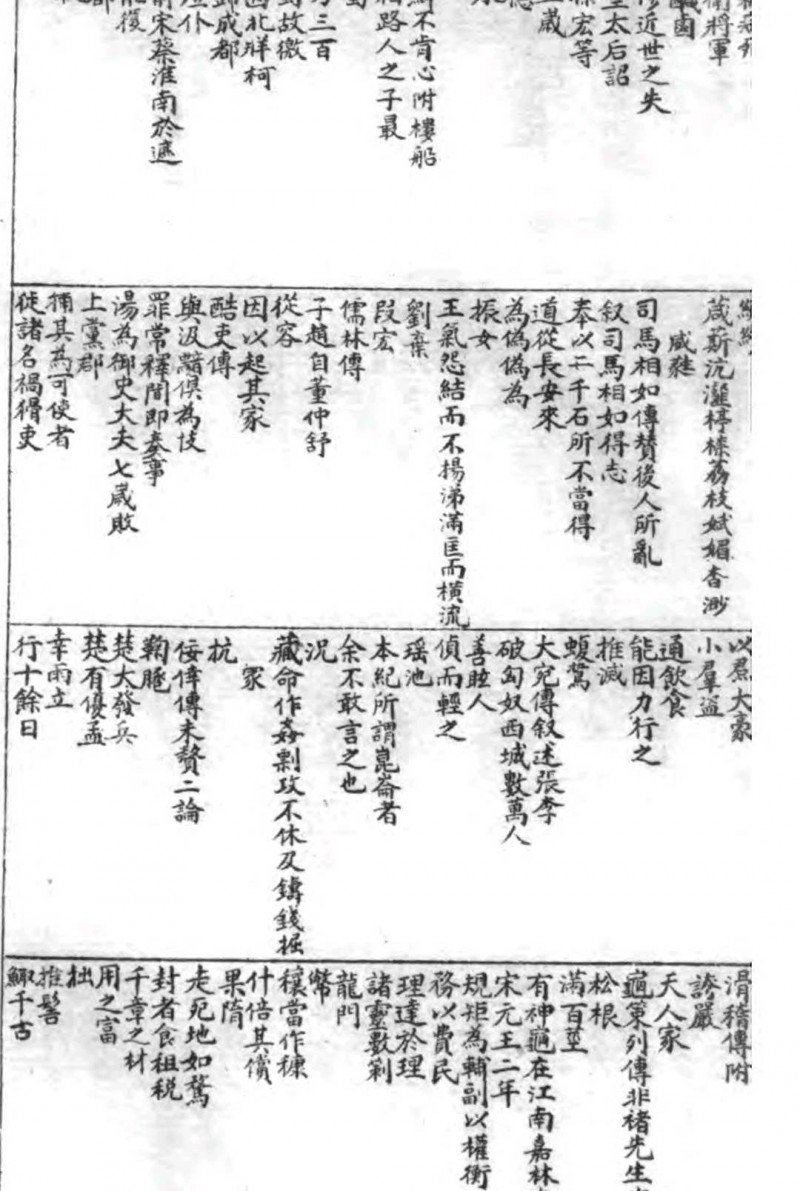 衛將軍
近世之失
太后詔
宏等
歲
不肯心附樓船
路人之子最
三百
故徼
西北牂柯
歸成都
宋蔡淮南於遮
復
葴薪沆瀣楟榛荔枝娬媚杳渺
咸韰
司馬相如傳贊後人所亂
叙司馬相如得志
奉以二千石所不當得
道從長安來
為偽偽為
振女
王氣怨結而不揚涕滿匡而橫流
劉棄
段宏
儒林傳
子趙自董仲舒
從容
因以起其家
酷吏傳
與汲黯俱為忮
罪常釋間即奏事
湯為御史大夫七歲敗
上黨郡
捕其為可使者
徒諸名禍猾吏
以焄大豪
小羣盜
通飲食
能因力行之
推減
蝮鷙
大宛傳叙述張李
破匈奴西城數萬人
善眩人
偵而輕之
瑤池
本紀所謂崑崙者
余不敢言之也
況
藏命作姦剽攻不休及鑄錢掘
冢
抗
佞倖傳末贅二論
鞠䠆
楚大發兵
楚有優孟
幸雨立
行十餘日
滑稽傳附
誇嚴
天人家
龜策列傳非褚先生
松根
滿百莖
有神龜在江南嘉林
宋元王二年
規矩為輔副以權衡
務以費民
理達於理
諸靈數剝
龍門
幣
穰當作穅
什倍其償
果隋
走死地如騖
封者食租税
千章之材
用之富
拙
推髻
鯫千古